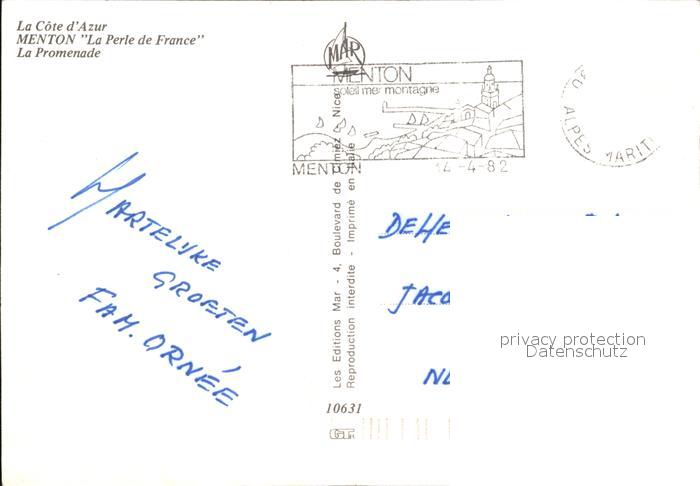 La Côte d'Azur
MENTON "La Perle de France"
La Promenade
MAR
MENTON
soleil mer montagne
MENTON
14-4-82
ALPES MARIT
HARTELIJKE
GROETEN
FAM. ORNÉE
Les Editions Mar - 4, Boulevard de Cimiez - Nice
Reproduction interdite - Imprimé en Italie
DEHE
JACO
NL
privacy protection
Datenschutz
10631